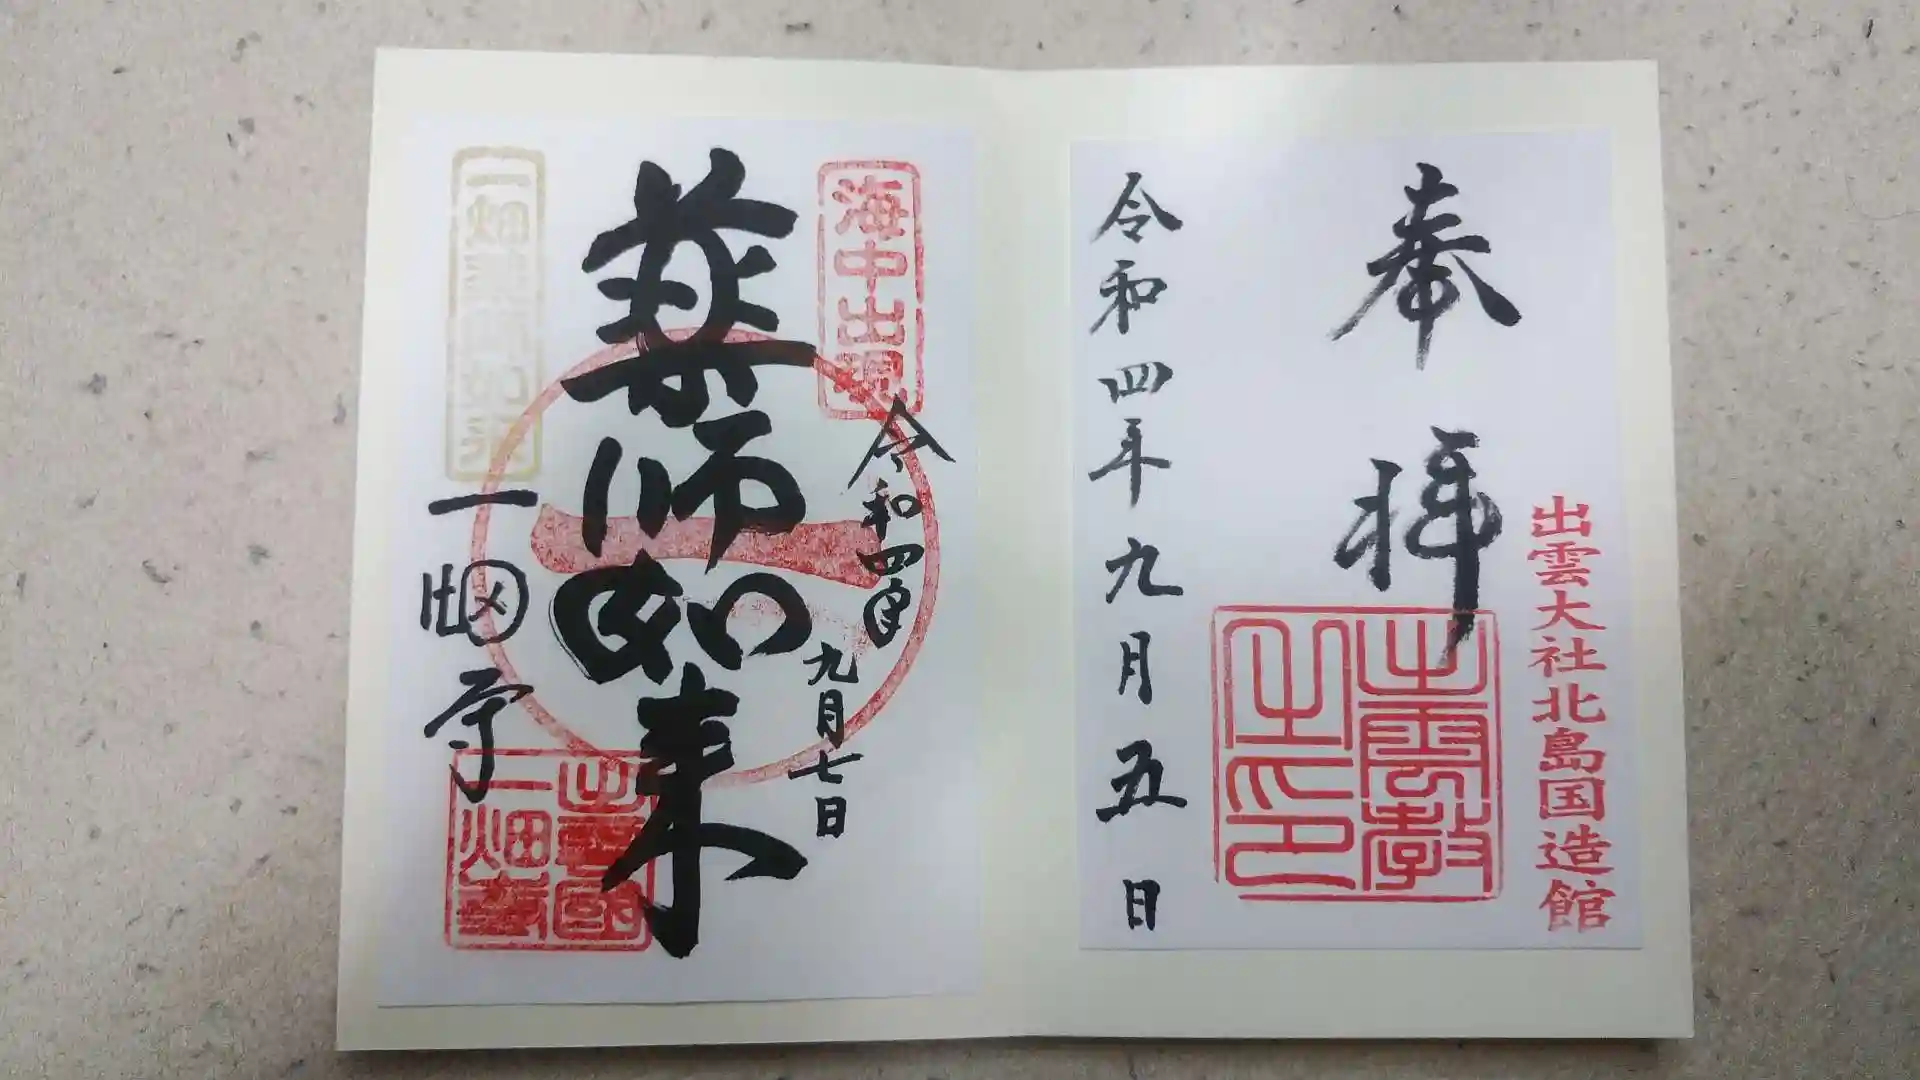 奉拝
出雲大社北島国造館
出雲教之印
令和四年九月五日
海中出現
令和四年
九月七日
薬師如来
一畑薬師如来
一畑寺
出雲國一畑寺